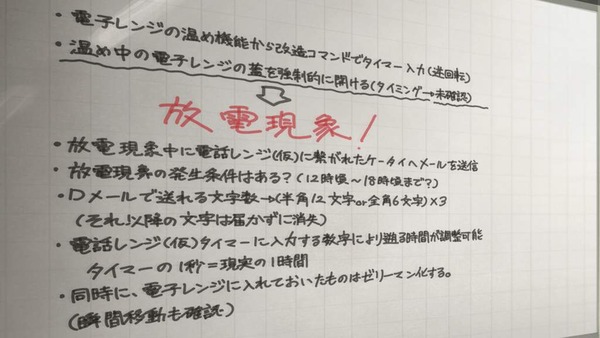 ・電子レンジの温め機能から改造コマンドでタイマー入力(逆回転)
・温め中の電子レンジの蓋を強制的に開ける(タイミング→未確認)
放電現象!
・放電現象中に電話レンジ(仮)に繋がれたケータイへメールを送信
・放電現象の発生条件はある?(12時頃~18時頃まで?)
・Dメールで送れる文字数→(半角12文字or全角6文字)×3
(それ以降の文字は届かずに消失)
・電話レンジ(仮)タイマーに入力する数字により遡る時間が調整可能
タイマーの1秒=現実の1時間
・同時に、電子レンジに入れておいたものはゼリーマン化する。
(瞬間移動も確認)